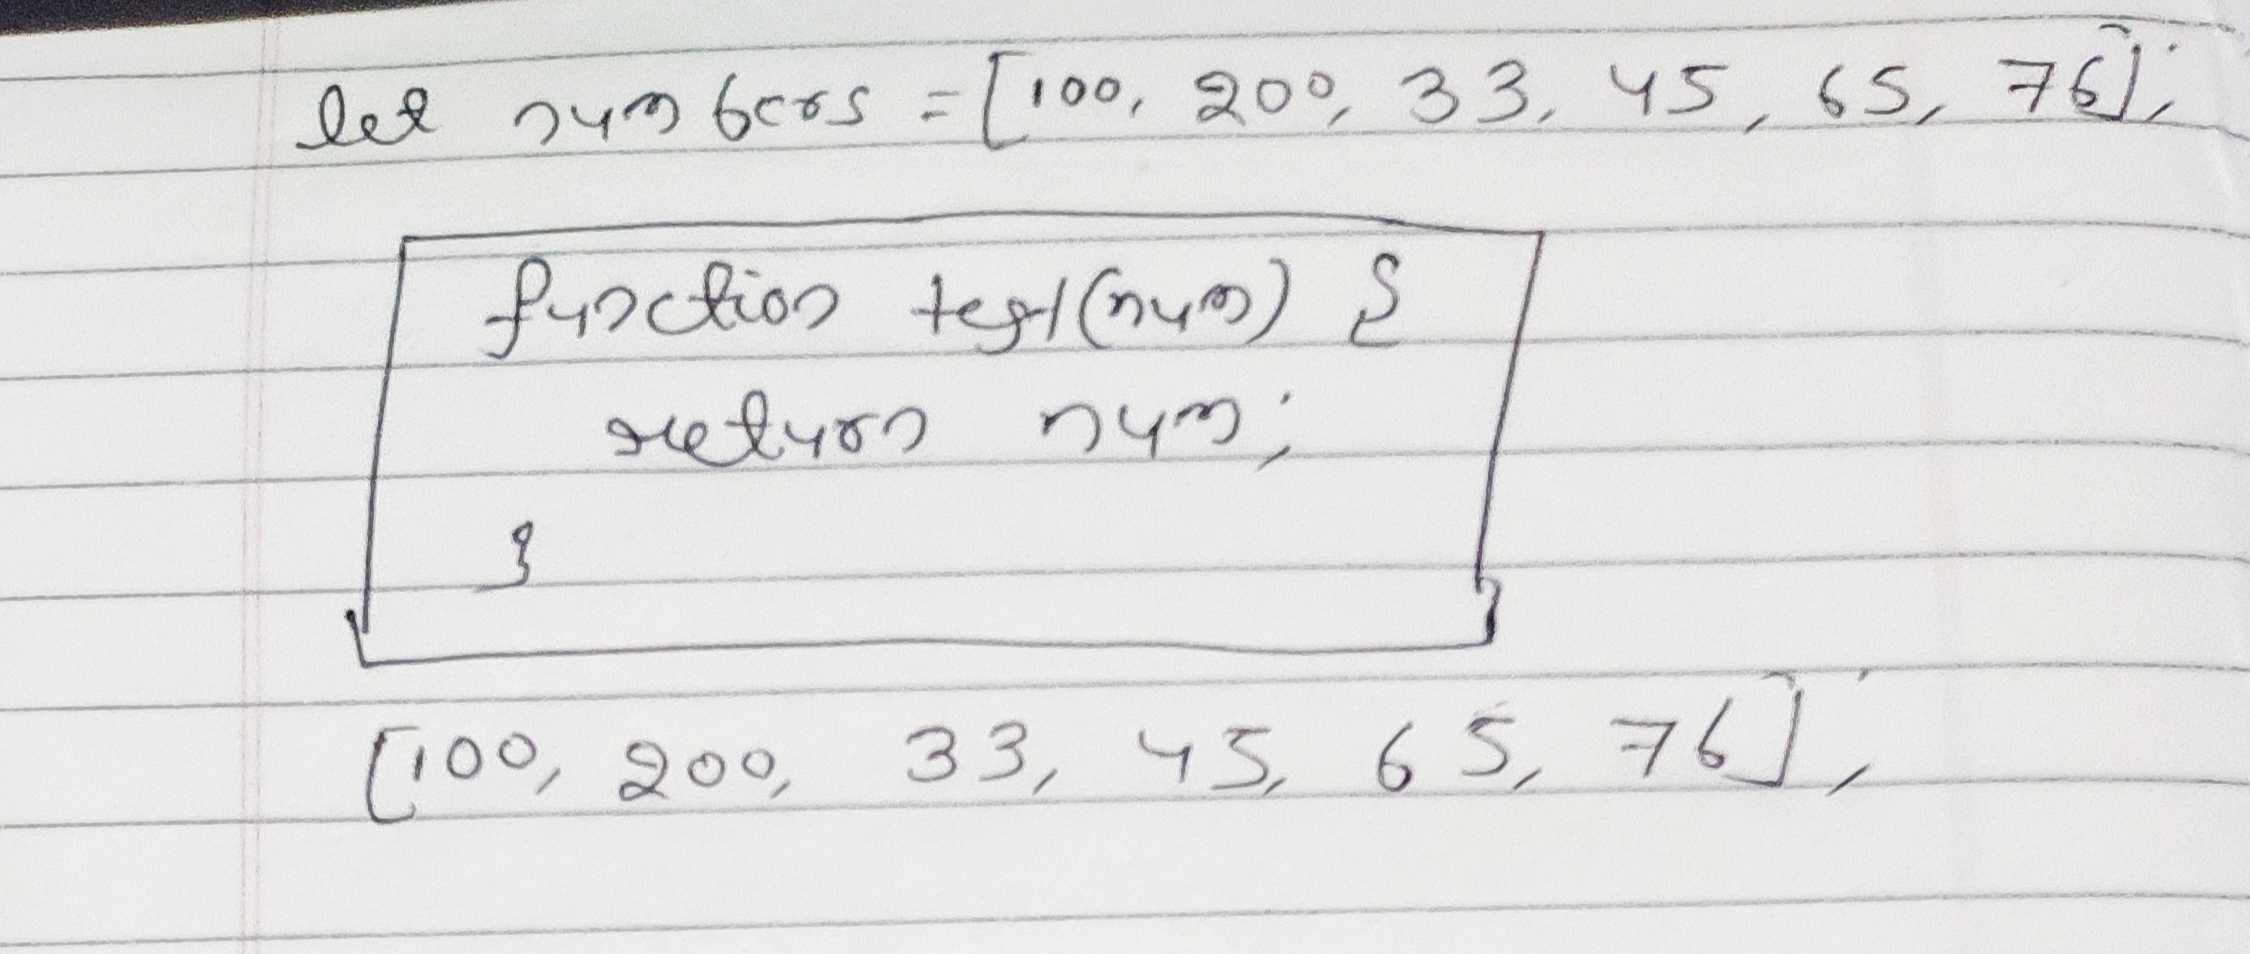 let numbers = [100, 200, 33, 45, 65, 76];
function test(num) {
return num;
}
[100, 200, 33, 45, 65, 76];